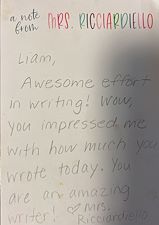 a note
from MRS. RICCIARDIELLO
Liam,
Awesome effort
in writing! Wow,
you impressed me
with how much you
wrote today. You
are an amazing
writer! ♡ Mrs.
Ricciardiello